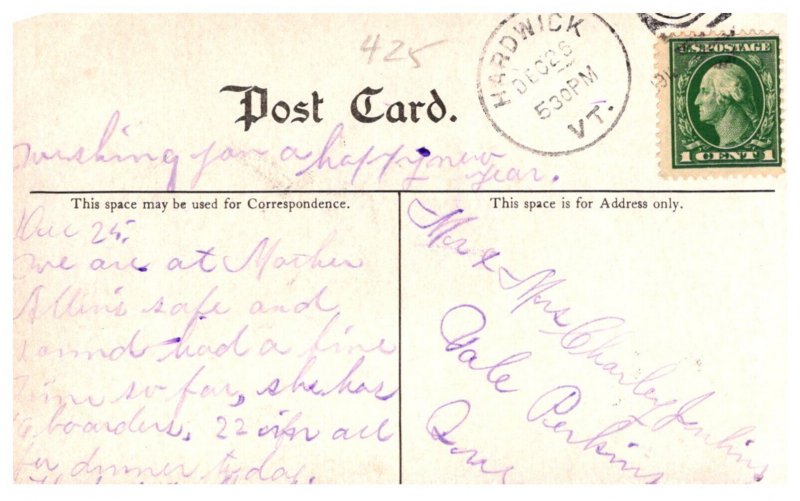 425
HARDWICK
DEC 26
530PM
VT.
U.S. POSTAGE
1 CENT 1
Post Card.
wishing you a happy new
year.
This space may be used for Correspondence.
Dec 25.
we are at Mother
Allens safe and
sound had a fine
time so far, she has
boarders, 22 in all
for dinner today.
This space is for Address only.
Mr & Mrs Charley Jenkins
Vale Perkins
Que